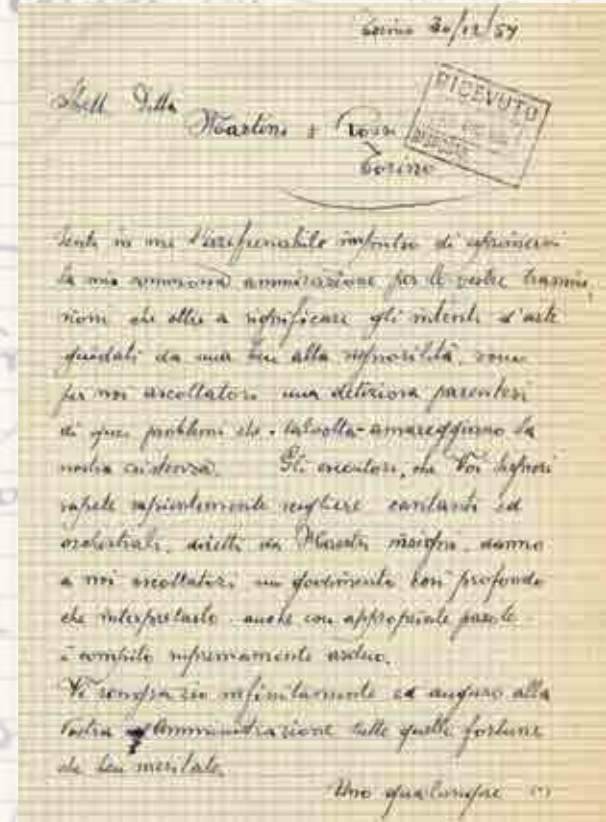 Torino 30/12/54
Spett. Ditta
Martini & Rossi
Torino
RICEVUTO
RISPOSTO
Sento in me l'irrefrenabile impulso di esprimervi
la mia ammirazione per le vostre trasmis
sioni che oltre a significare gli intenti d'arte
guidati da una ben alta signorilità, sono
per noi ascoltatori una deliziosa parentesi
di quei problemi che - talvolta - amareggiano la
nostra esistenza. Gli esecutori, che Voi Signori
sapete sapientemente scegliere cantanti ed
orchestrali, diretti da Maestri insigni, danno
a noi ascoltatori un godimento così profondo
che interpretarlo anche con appropriate parole
è compito supremamente arduo.
Vi ringrazio infinitamente ed auguro alla
Vostra Amministrazione tutte quelle fortune
che ben meritate.
Uno qualunque